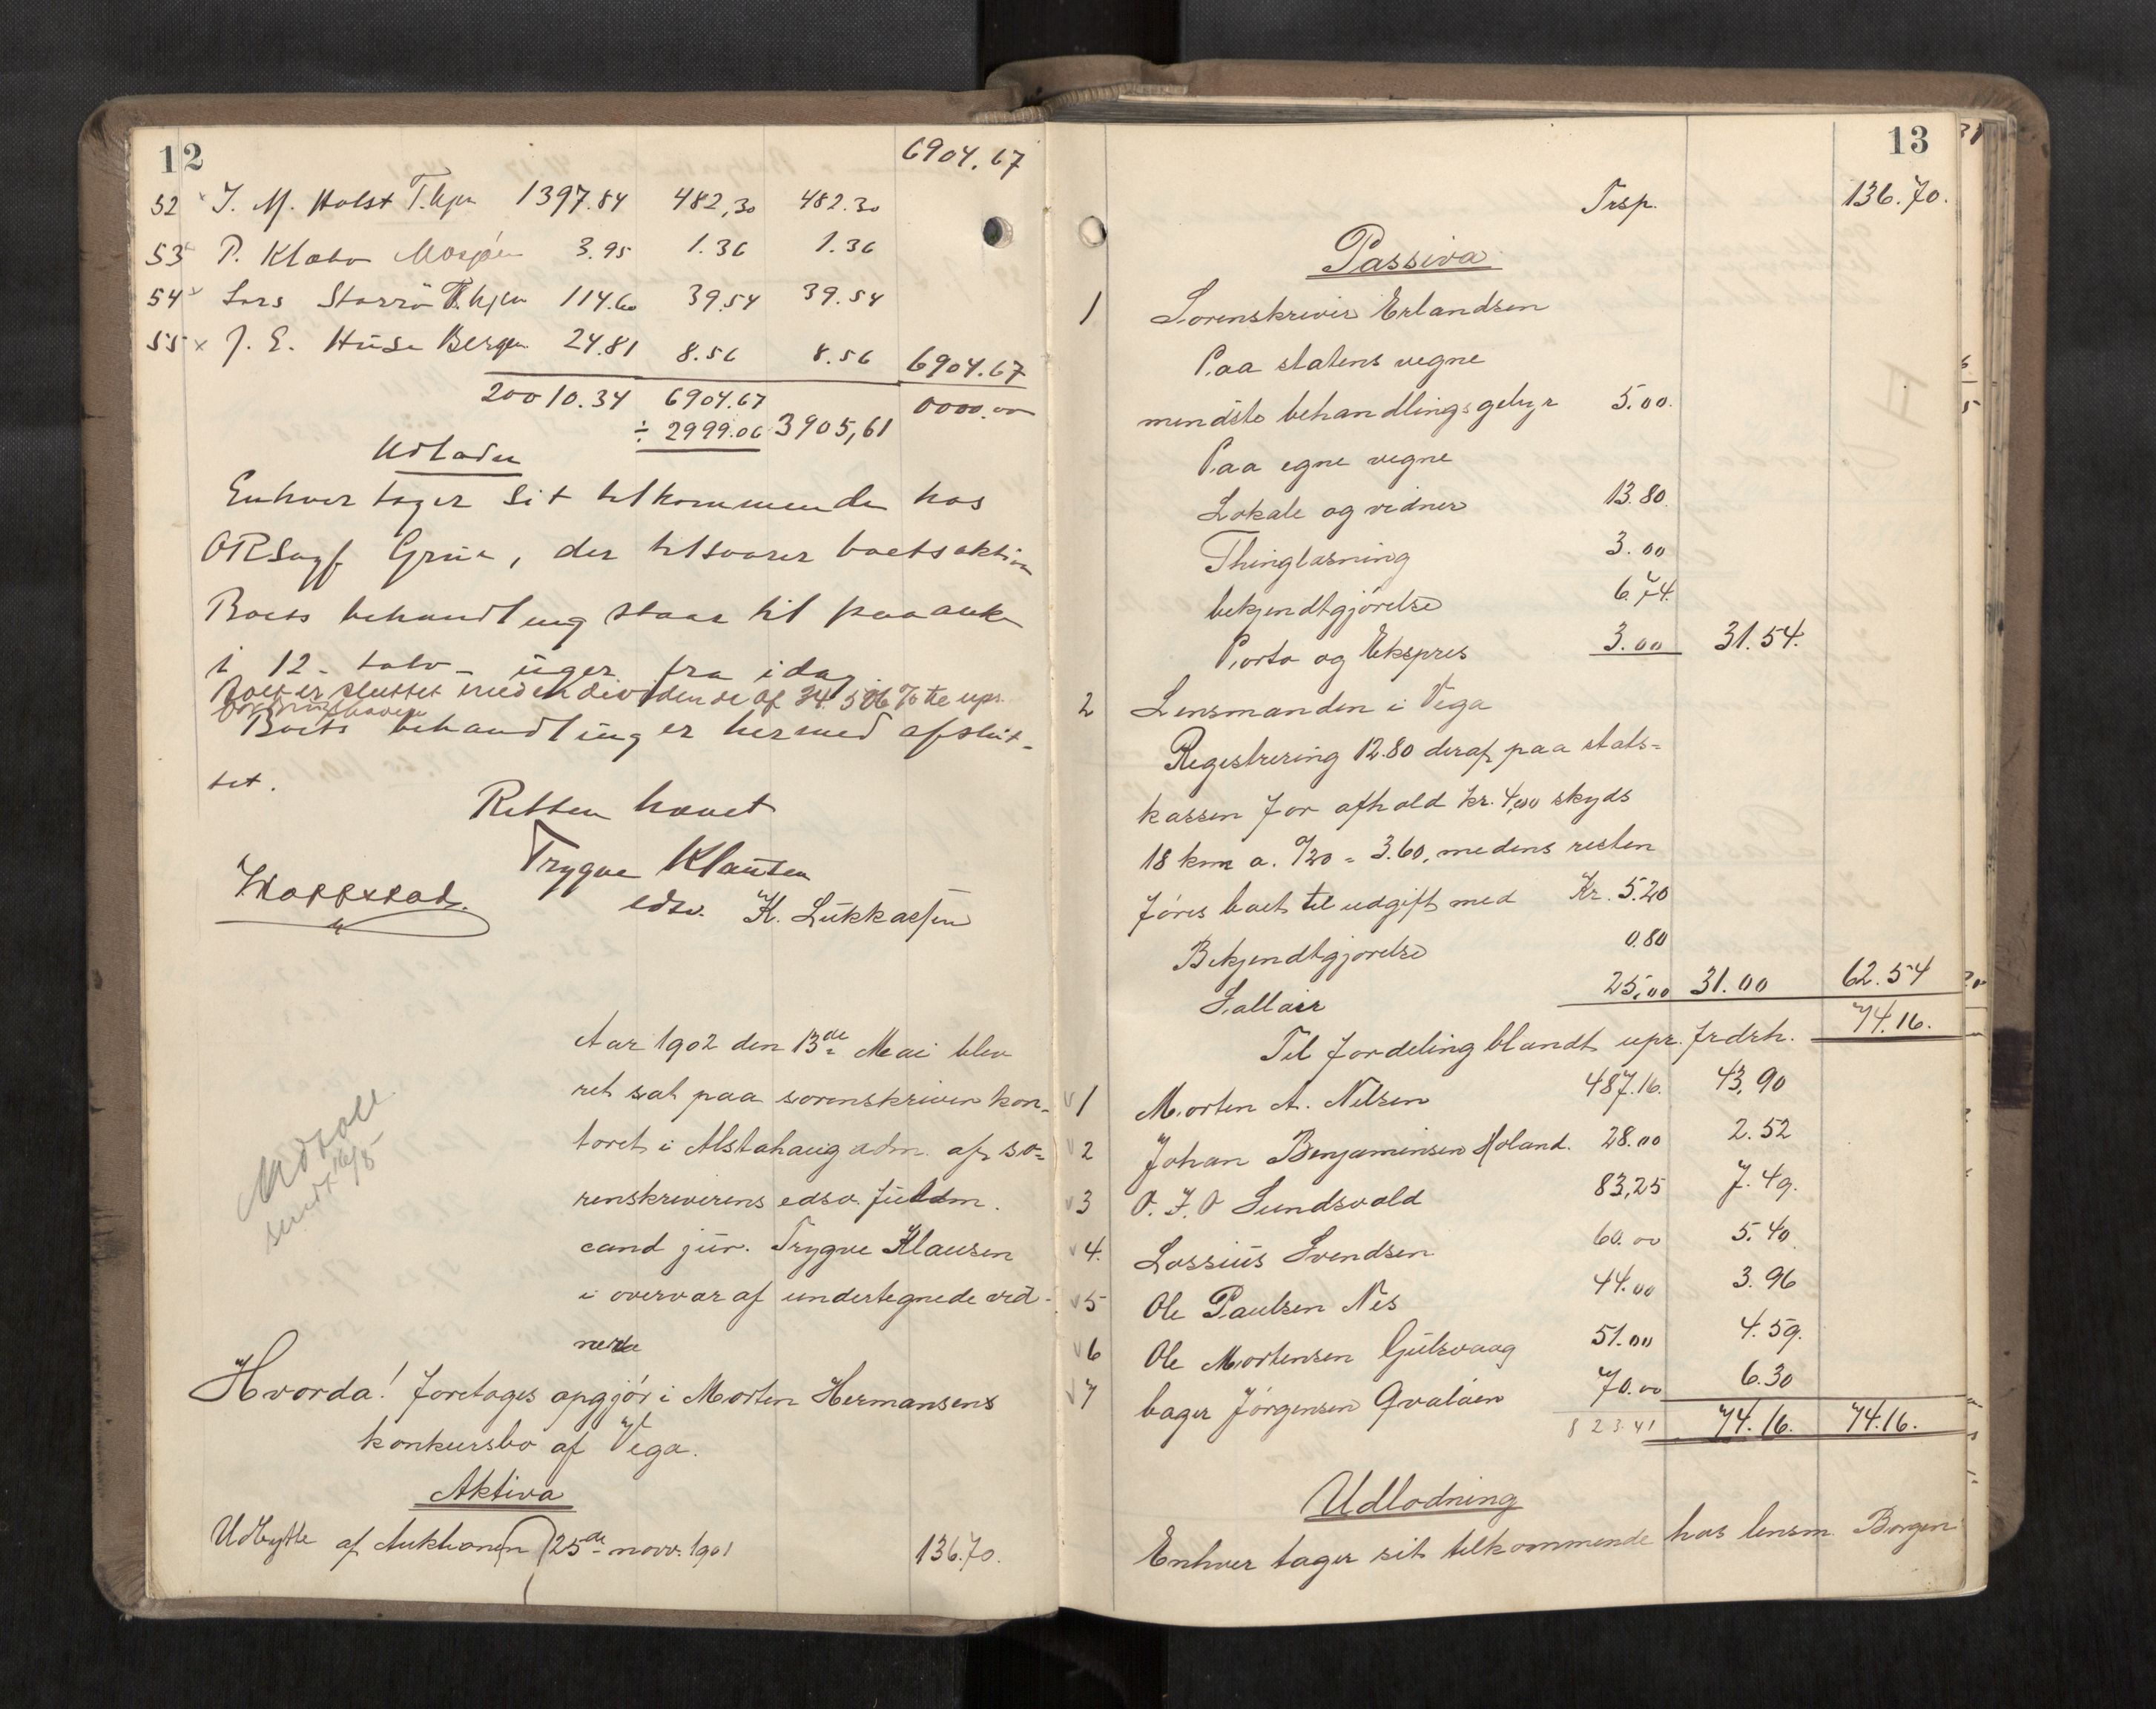 12
6904.67
52 J. M. Holst T.hjm 1397.84 482,30 482.30
53 P. Klæbo Mosjøen 3.95 1.36 1.36
54 Lars Storrö T.hjm 114.60 39.54 39.54
55 x J. E. Huse Bergen 24.81 8.56 8.56 6904.67
20010.34 6904.67 0000.00
÷ 2999.06 3905,61
Udlodn
Enhver tager Sit tilkommende hos
ORSagf Grün, der tilsvarer boets aktiva
Boets behandling staar til paaanke
i 12 - tolv - uger fra idag
Boet er sluttet med en dividende af 34.506 % til upr.
Boets behandling er hermed afslut-
tet.
Retten hævet
Trygve Klausen
edsv. K. Lukkassen
Aar 1902 den 13de Mai blev
ret sat paa sorenskriverkon-
toret i Alstahaug adm. af so-
renskriverens edsv. fuldm.
cand jur. Trygve Klausen
i overvær af undertegnede vid-
ner
Udsat
sendt 16/5
Hvorda! foretoges opgjör i Morten Hermansens
konkursbo af Vega.
Aktiva
Udbytte af Auktionen 25de novr. 1901 136.70.
13
Trsp. 136.70.
Passiva
1 Sorenskriver Erlandsen
Paa statens vegne
mindste behandlingsgebyr 5.00.
Paa egne vegne
Lokale og vidner 13.80
Thinglæsning 3.00
bekjendtgjörelse 6.74.
Porto og Ekspres 3.00 31.54.
2 Lensmanden i Vega
Registrering 12.80 deraf paa stats-
kassen for afhold kr. 4,00 skyds
18 km a. 0/20 = 3.60, medens resten
föres boet til udgift med Kr. 5.20
Bekjendtgjörelse 0.80
Sallair 25,00 31.00 62.54
Til fordeling blandt upr. frdrh. 74.16.
1 Morten A. Nilsen 487.16. 43,90
2 Johan Benjaminsen Holand. 28.00 2.52
3 O. J. O Sundsvold 83,25 7.49.
4. Lossius Svendsen 60.00 5.40
5 Ole Paulsen Nes 44.00 3.96
6 Ole Mortensen Gulsvaag 51.00 4.59.
7 bager Jörgensen Qvalöen 70.00 6.30
823.41 74.16. 74.16.
Udlodning
Enhver tager sit tilkommende hos lensm. Borgen